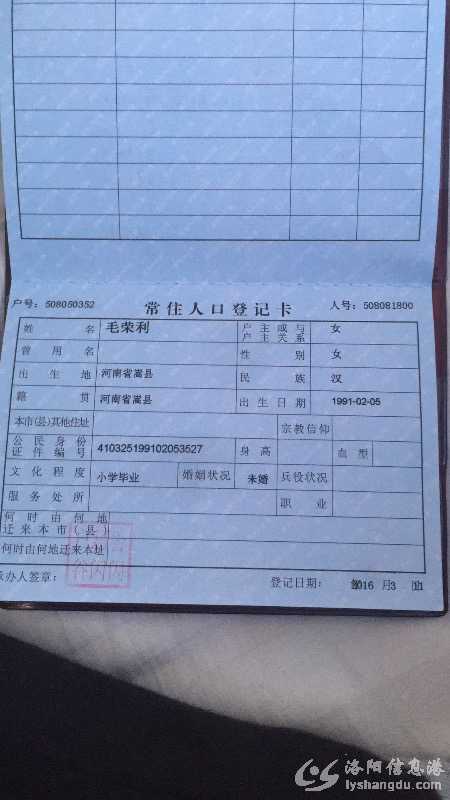 户号：508050352 常住人口登记卡 人号：508081800
姓名 毛荣利 户主或与户主关系 女
曾用名 性别 女
出生地 河南省嵩县 民族 汉
籍贯 河南省嵩县 出生日期 1991-02-05
本市(县)其他住址 宗教信仰
公民身份证件编号 410325199102053527 身高 血型
文化程度 小学毕业 婚姻状况 未婚 兵役状况
服务处所 职业
何时由何地迁来本市(县)
何时由何地迁来本址
承办人签章： 登记日期： 2016 月3
洛阳信息港
lyshangdu.com